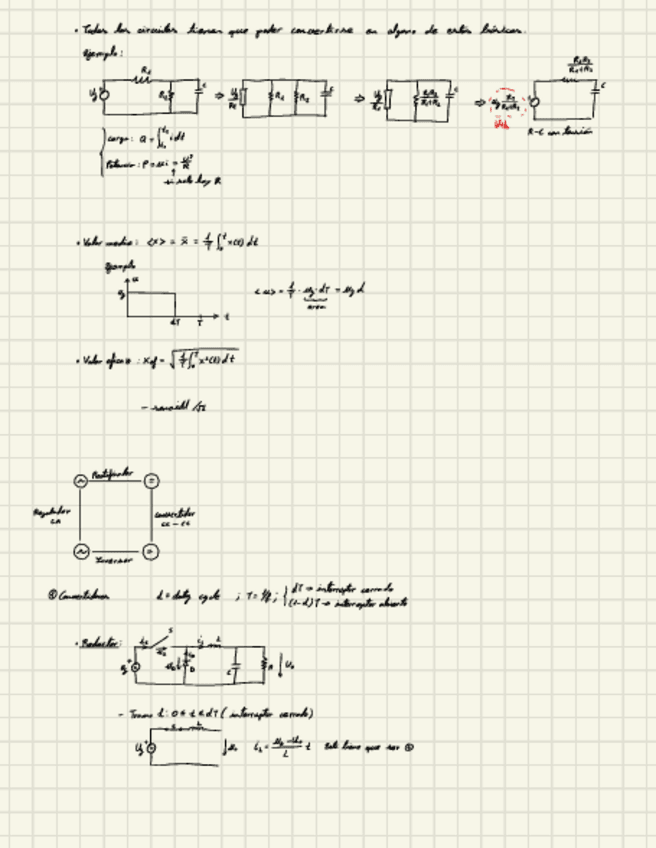 • Todos los circuitos tienen que poder convertirse en alguno de estos básicos.
Ejemplo:
R₁
Ug R₂ C ⇒ Ug/R₁ R₁ R₂ C ⇒ Ug/R₁ R₁R₂/(R₁+R₂) C ⇒ Ug R₂/(R₁+R₂) R₁R₂/(R₁+R₂) C
Uth R-C con tensión
Carga: Q = ∫ i dt
Potencia: P = u i = u²/R
si solo hay R
• Valor medio: <x> = x̄ = 1/T ∫ x(t) dt
Ejemplo
u
Ug
dT T t
<u> = 1/T · Ug · dT = Ug d
area
• Valor eficaz: Xef = √(1/T ∫ x²(t) dt)
/√2
Rectificador
Regulador
CA
Convertidor
cc-cc
Inversor
Convertidores d = duty cycle ; T = 1/f ; { dT → interruptor cerrado
(1-d)T → interruptor abierto
• Reductor:
S L
Ug D C R U₀
- Tramo 1: 0 ≤ t ≤ dT (interruptor cerrado)
Ug L U₀ iL = (Ug - U₀)/L t tiene que ser ⊕